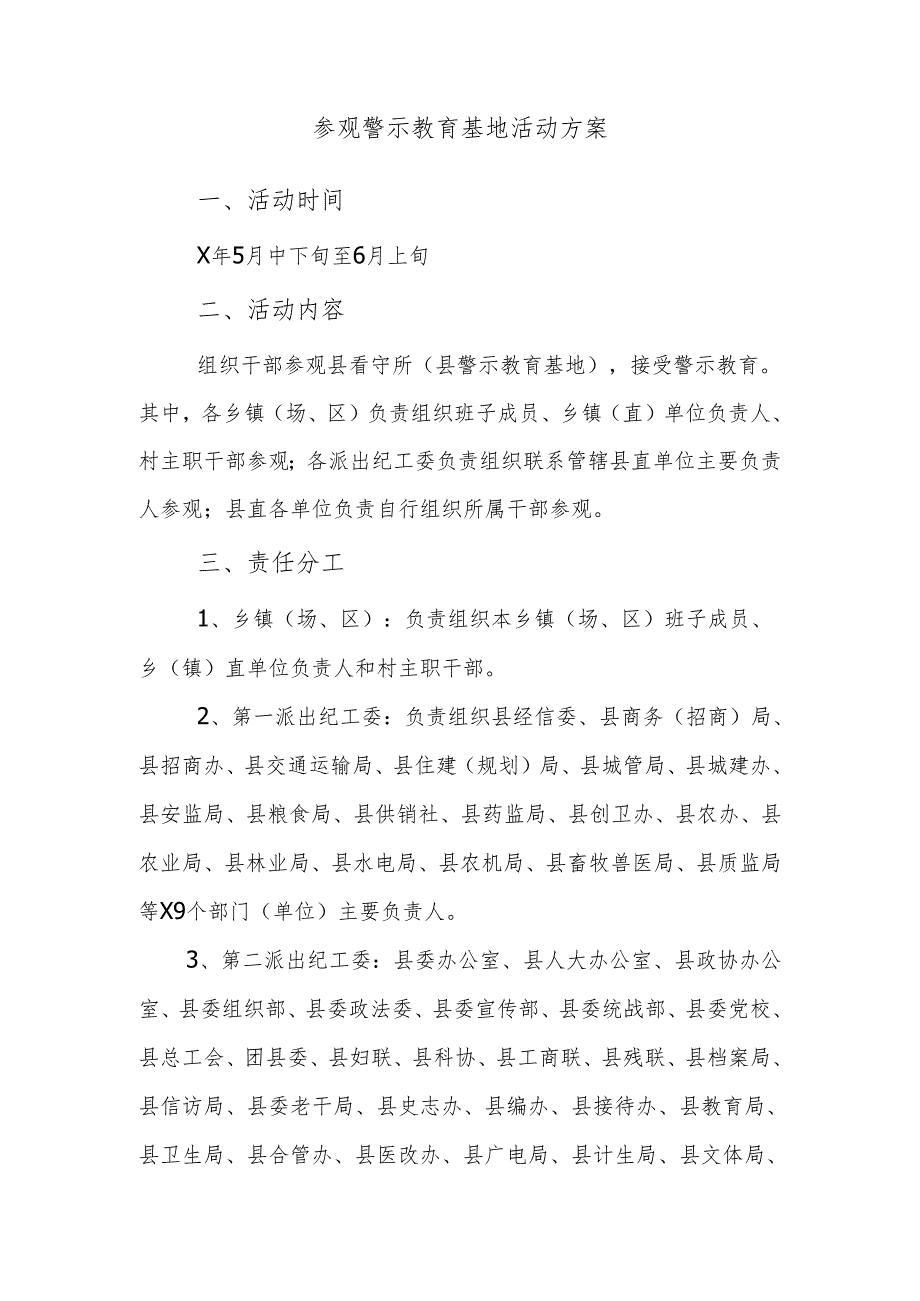 参观警示教育基地活动方案
一、活动时间
X年5月中下旬至6月上旬
二、活动内容
组织干部参观县看守所（县警示教育基地），接受警示教育。
其中，各乡镇（场、区）负责组织班子成员、乡镇（直）单位负责人、
村主职干部参观；各派出纪工委负责组织联系管辖县直单位主要负责
人参观；县直各单位负责自行组织所属干部参观。
三、责任分工
1、乡镇（场、区）：负责组织本乡镇（场、区）班子成员、
乡（镇）直单位负责人和村主职干部。
2、第一派出纪工委：负责组织县经信委、县商务（招商）局、
县招商办、县交通运输局、县住建（规划）局、县城管局、县城建办、
县安监局、县粮食局、县供销社、县药监局、县创卫办、县农办、县
农业局、县林业局、县水电局、县农机局、县畜牧兽医局、县质监局
等X9个部门（单位）主要负责人。
3、第二派出纪工委：县委办公室、县人大办公室、县政协办公
室、县委组织部、县委政法委、县委宣传部、县委统战部、县委党校、
县总工会、团县委、县妇联、县科协、县工商联、县残联、县档案局、
县信访局、县委老干局、县史志办、县编办、县接待办、县教育局、
县卫生局、县合管办、县医改办、县广电局、县计生局、县文体局、